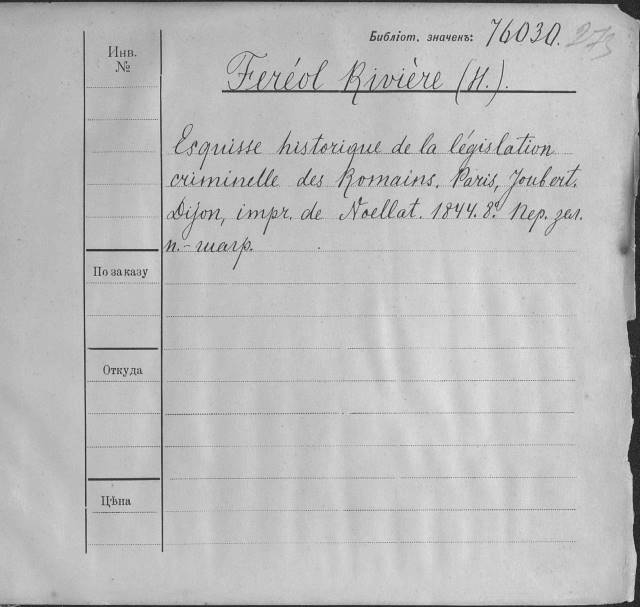 Библіот. значекъ: 76030. 273
Инв.
№
Feréol Rivière (H.).
Esquisse historique de la législation
criminelle des Romains. Paris, Joubert.
Dijon, impr. de Noellat. 1844. 8°. Пер. зел.
п.-шагр.
По заказу
Откуда
Цѣна